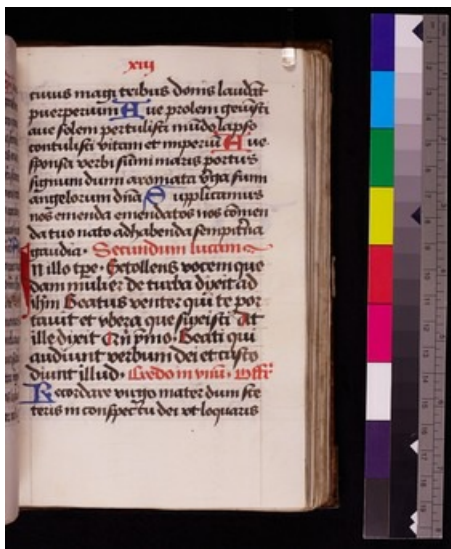 xiij
cuius magi tribus donis laudāt
puerperium Aue prolem genuisti
aue solem pertulisti mūdo lapso
contulisti vitam et imperiū Aue
sponsa verbi sūmi maris portus
signum dumi aromatū v̄ga fumi
angelorum dn̄a Supplicamus
nos emenda emendatos nos cōmen
da tuo nato ad habenda sempit̄na
gaudia · Secundum lucam
In illo tpe · Extollens vocem que
dam mulier de turba dixit ad
ihm̄ Beatus venter qui te por
tauit et vbera que suxisti At
ille dixit Beati qui
audiunt verbum dei et custo
diunt illud · Credo in vnū · Offr̄
Recordare virgo mater dum ste
teris in conspectu dei vt loquaris